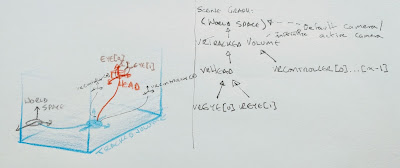 SCENE GRAPH:
(WORLD SPACE)
DEFAULT CAMERA/
ACTIVE CAMERA
VRTRACKED VOLUME
VRHEAD
VRCONTROLLER[0]...[n-1]
VREYE[0] VREYE[1]
EYE[0]
EYE[1]
HEAD
WORLD
SPACE
TRACKED VOLUME